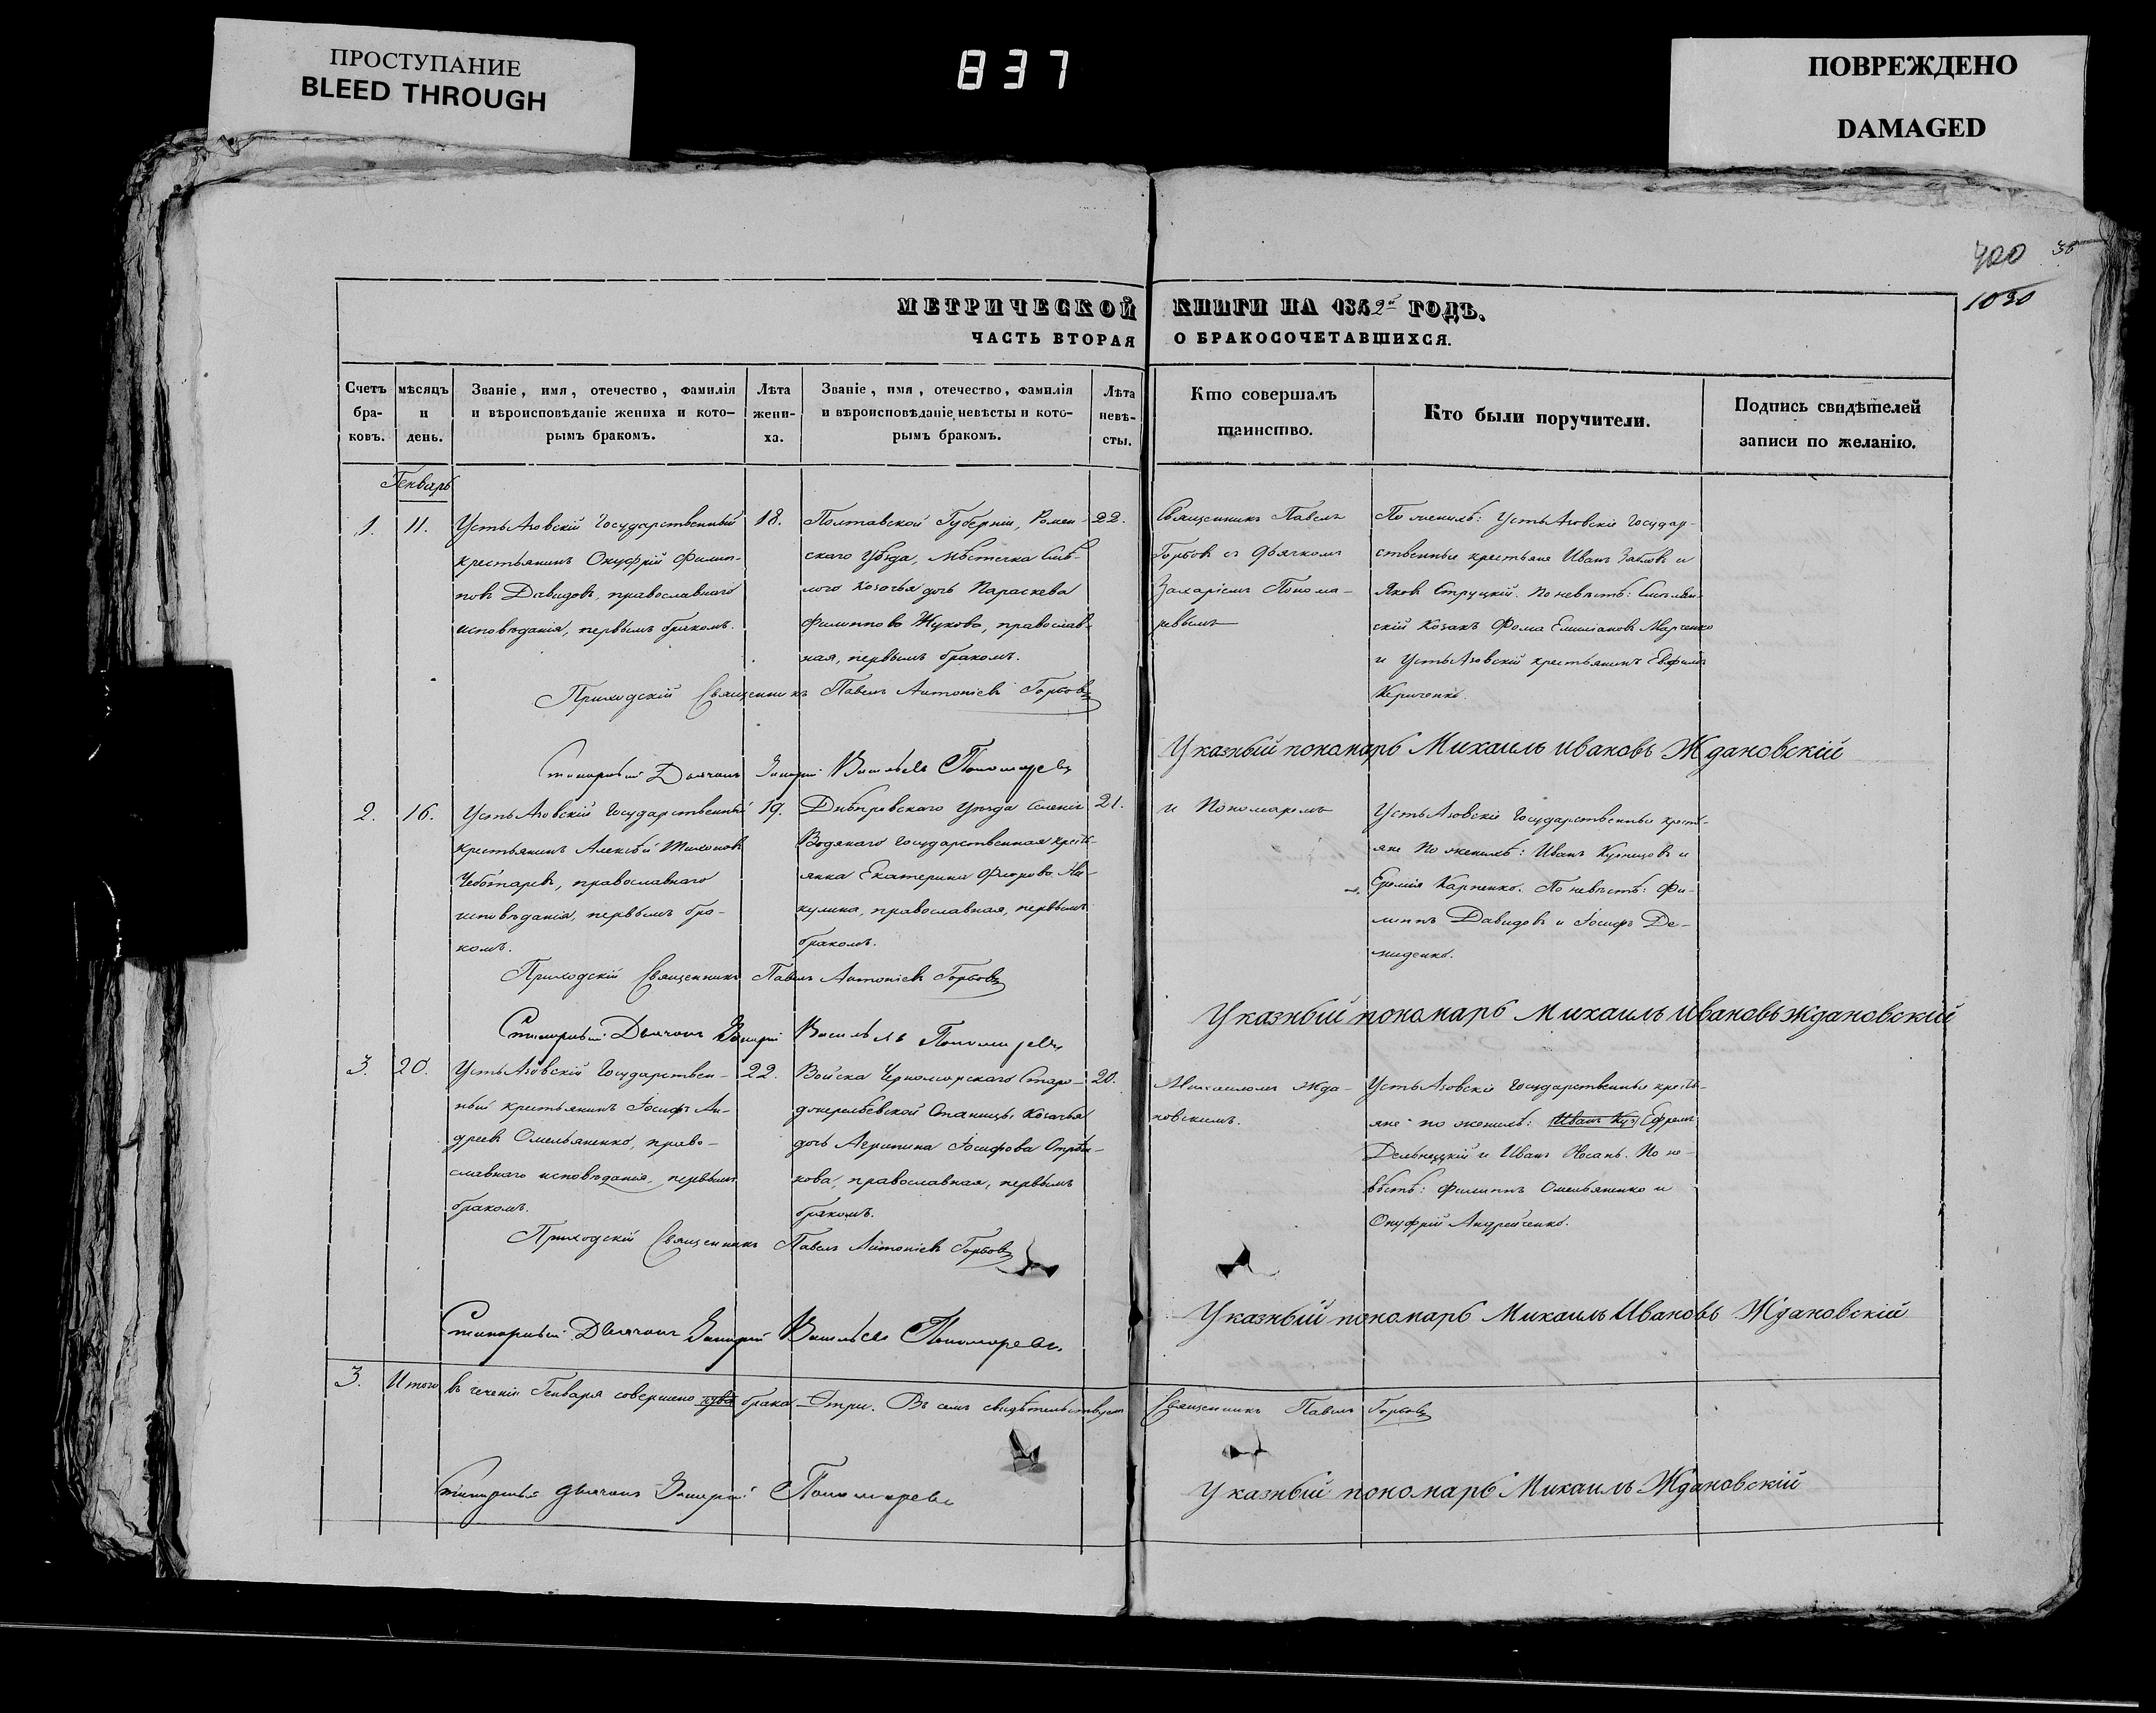 ПРОСТУПАНИЕ
BLEED THROUGH
837
ПОВРЕЖДЕНО
DAMAGED
400
1030
МЕТРИЧЕСКОЙ КНИГИ НА 1842й ГОДЪ.
ЧАСТЬ ВТОРАЯ О БРАКОСОЧЕТАВШИХСЯ.
Счетъ бра-ковъ.
мѣсяцъ и день.
Званіе, имя, отечество, фамилія
и вѣроисповѣданіе жениха и кото-
рымъ бракомъ.
Лѣта жени-ха.
Званіе, имя, отечество, фамилія
и вѣроисповѣданіе невѣсты и кото-
рымъ бракомъ.
Лѣта невѣ-сты.
Кто совершалъ
таинство.
Кто были поручители.
Подпись свидѣтелей
записи по желанію.
Генварь
1.
11.
УстьАзовскій Государственный
крестьянинъ Онуфрій Филип-
повъ Давидовъ, православнаго
исповѣданія, первымъ бракомъ.
18.
Полтавской Губерніи, Ромен-
скаго Уѣзда, Мѣстечка Смѣ-
лого Козачья дочь Параскева
Филиппова Жукова, православ-
ная, первымъ бракомъ.
22.
Священникъ Павелъ
Горбовъ съ Дьячкомъ
Захаріемъ Понома-
ревымъ
По женихѣ: УстьАзовскіе Государ-
ственные крестьяне Иванъ и
Яковъ Струцкій. По невѣстѣ:
скій Козакъ Фома Емиліановъ Марченко
и УстьАзовскій крестьянинъ Евфимъ
Кириченко.
Приходскій Священникъ Павелъ Антоніевъ Горбовъ
Указный пономарь Михаилъ Ивановъ Ждановскій
Дьячокъ Захарій Васильевъ Пономаревъ
2.
16.
УстьАзовскій Государственный
крестьянинъ Алексѣй Тихоновъ
Чеботаревъ, православнаго
исповѣданія, первымъ бра-
комъ.
19.
Днѣпровскаго Уѣзда Селенія
Водянаго Государственная кресть-
янка Екатерина Ни-
кулина, православная, первымъ
бракомъ.
21.
и Пономаремъ
УстьАзовскіе Государственные кресть-
яне По женихѣ: Иванъ Кузнецовъ и
Еремія Карпенко. По невѣстѣ: Фи-
липпъ Давидовъ и Іосифъ Де-
миденко.
Приходскій Священникъ Павелъ Антоніевъ Горбовъ
Указный пономарь Михаилъ Ивановъ Ждановскій
Дьячокъ Захарій Васильевъ Пономаревъ
3.
20.
УстьАзовскій Государствен-
ный крестьянинъ Іосифъ Ан-
дреевъ Омельяненко, право-
славнаго исповѣданія, первымъ
бракомъ.
22.
Войска Черноморскаго Старо-
Станицы Козачья
дочь Агрипина Іосифова
православная, первымъ
бракомъ.
20.
Михаиломъ Жда-
новскимъ.
УстьАзовскіе Государственные кресть-
яне по женихѣ: Иванъ Куз Ефремъ
и Иванъ Носань. По не-
вѣстѣ: Филиппъ Омельяненко и
Онуфрій Андрейченко.
Приходскій Священникъ Павелъ Антоніевъ Горбовъ
Указный пономарь Михаилъ Ивановъ Ждановскій
Дьячокъ Захарій Васильевъ Пономаревъ
3.
Итого въ теченіи Генваря совершено два брака три. Въ семъ свидѣтельствуемъ Священникъ Павелъ Горбовъ
дьячокъ Захарій Пономаревъ
Указный пономарь Михаилъ Ждановскій